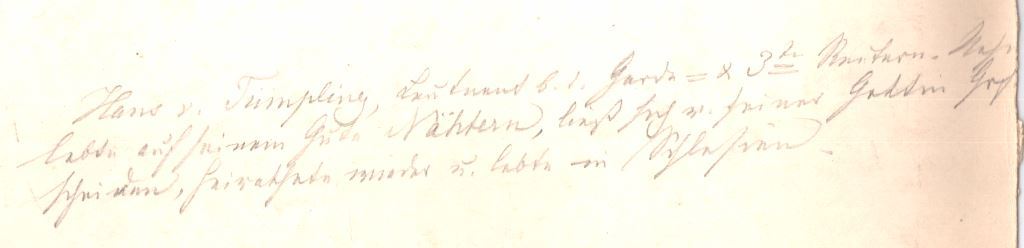 Hans v. Tümpling, Leutnant b. d. Garde = & 3te Reitern.
lebte auf seinem Gute Nähtern, ließ sich v. seiner Gattin
scheiden, heirathete wieder u. lebte in Schlesien.